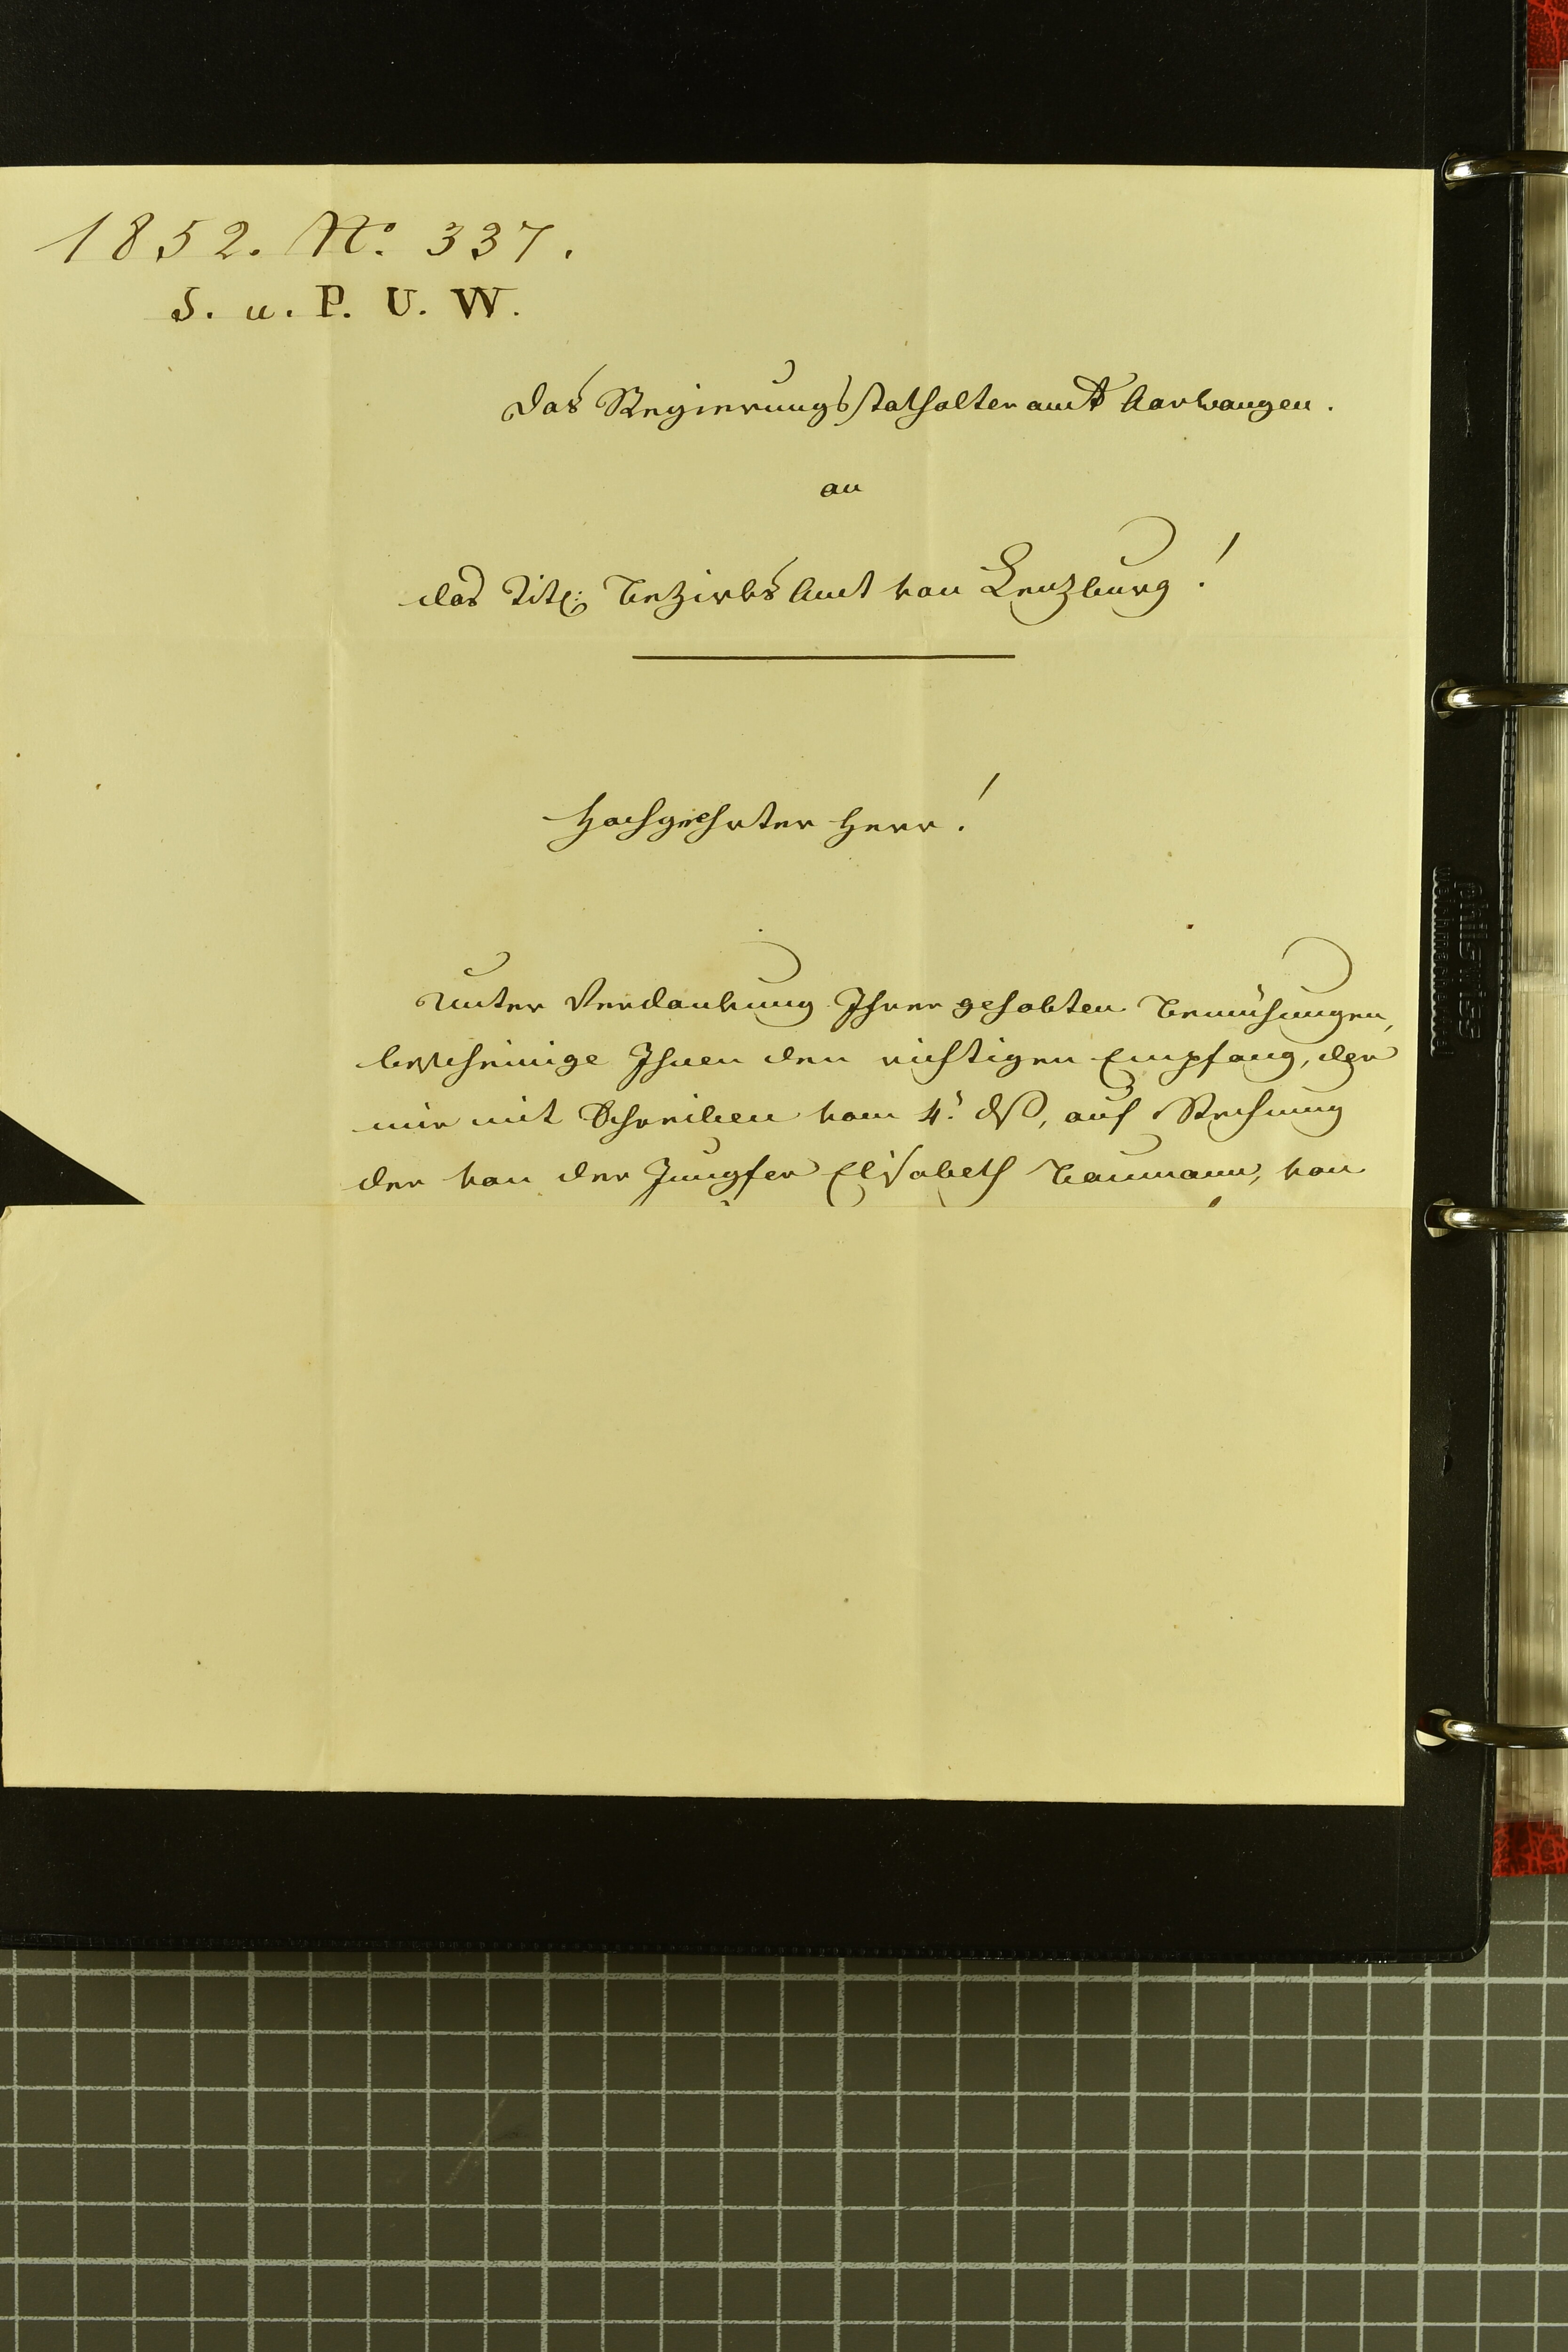 1852. No. 337.
S. u. P. U. W.
Das Regierungsstathalteramt Aarwangen.
an
das Titl: Bezirks Amt von Lenzburg!
Hochgeehrter Herr!
Unter Verdankung Ihrer gehabten Bemühungen,
bescheinige Ihnen den richtigen Empfang, der
mir mit Schreiben vom 4. dß, auf Rechnung
der von der Jungfer Elisabeth Baumann, von
philswiss